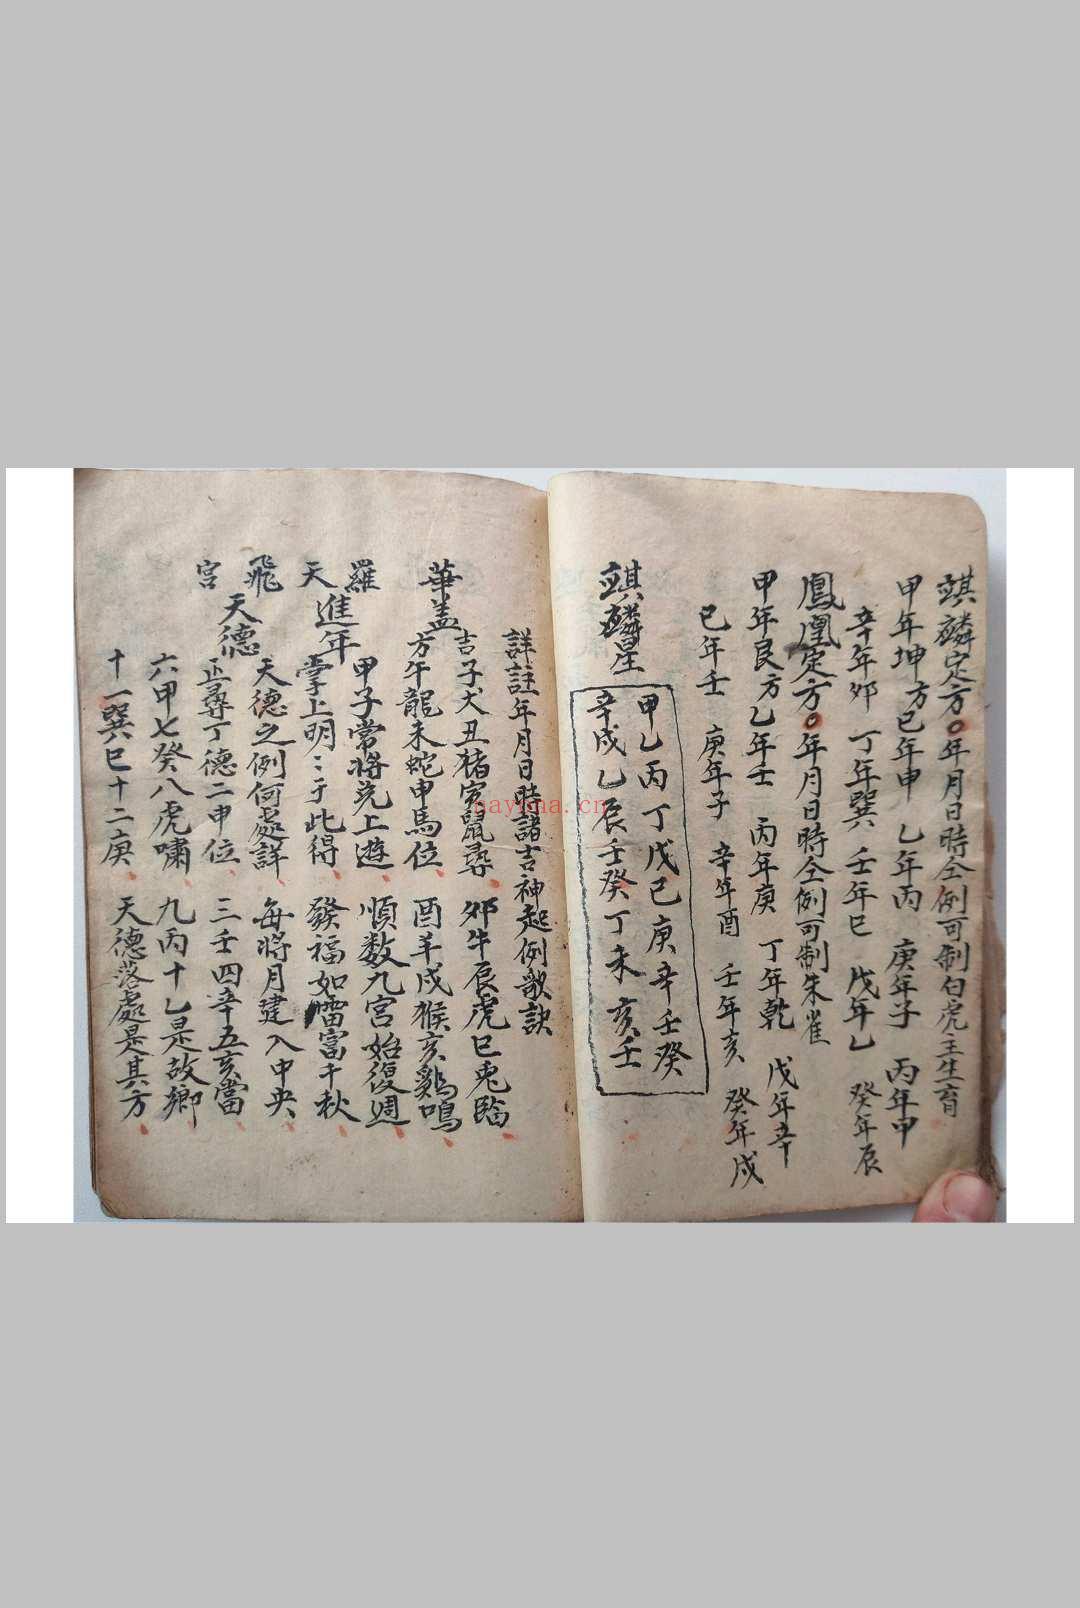 麒麟定方○年月日時仝例可制白虎主生育
甲年坤方巳年申 乙年丙 庚年子 丙年甲
辛年卯 丁年巽 壬年巳 戊年乙 癸年辰
鳳凰定方○年月日時仝例可制朱雀
甲年艮方乙年壬 丙年庚 丁年乾 戊年辛
巳年壬 庚年子 辛年酉 壬年亥 癸年戌
麒麟星
甲乙丙丁戊巳庚辛壬癸
辛戌乙辰壬癸丁未亥壬
詳註年月日時諸吉神起例歌訣
華盖
吉子犬丑猪寅鼠尋 卯牛辰虎巳兎臨
方午龍未蛇申馬位 酉羊戌猴亥鷄鳴
羅天進年
甲子常将兑上遊 順数九宮始復週
掌上明〻于此得 發福如雷富千秋
飛宮天德
天德之例何處詳 每将月建入中央
正尋丁德二申位 三壬四辛五亥當
六甲七癸八虎嘯 九丙十乙是故鄉
十一巽巳十二庚 天德落處是其方
nayona.cn